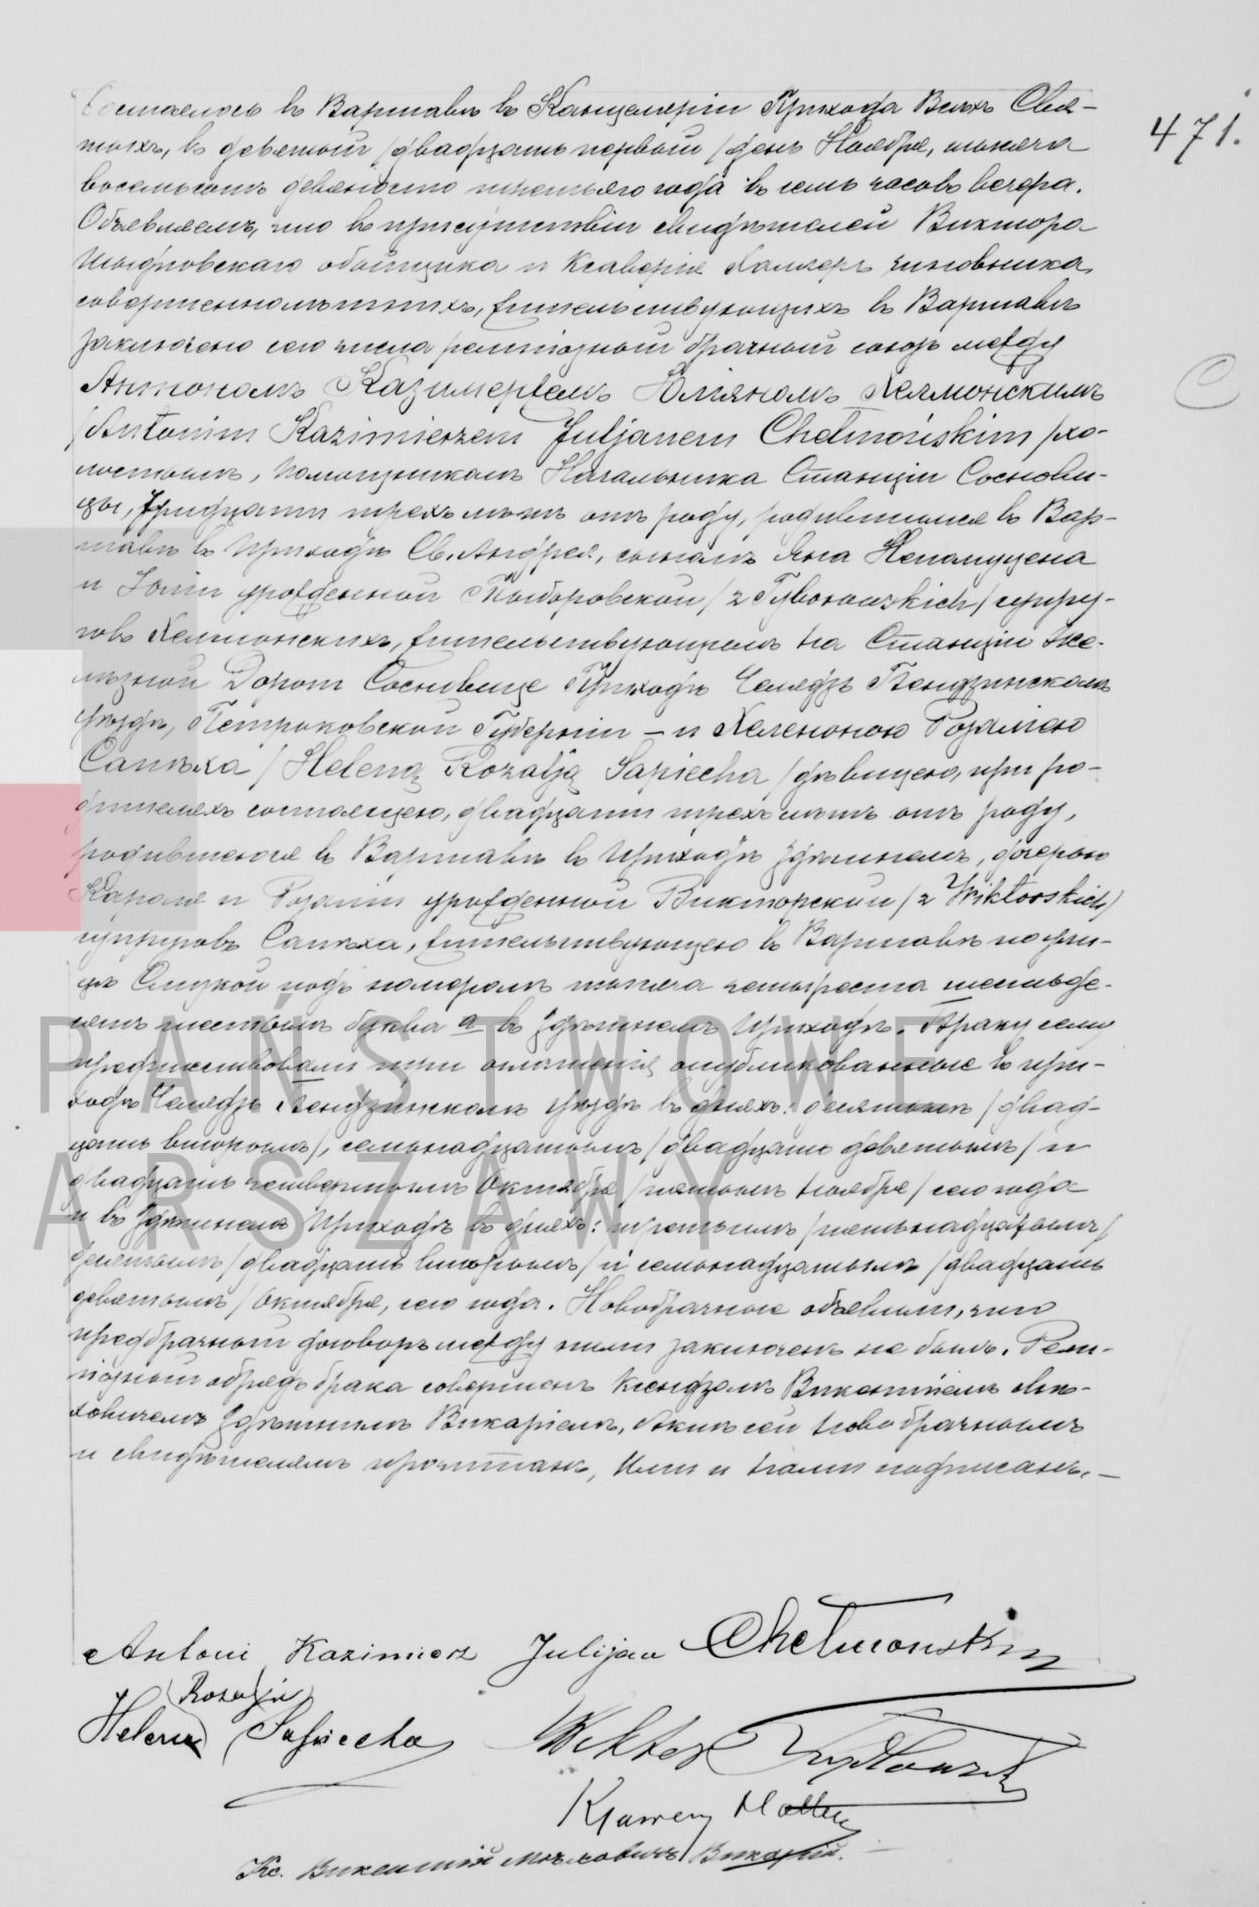 471.
Состоялось въ Варшавѣ въ Канцеляріи Прихода Всѣхъ Свя-
тыхъ, въ девятый /двадцать первый/ день Ноября, тысяча
восемьсотъ девяносто третьяго года въ семь часовъ вечера.
Объявляемъ, что въ присутствіи свидѣтелей Виктора
обойщика и Ксаверія Халлеръ чиновника
совершеннолѣтнихъ, жительствующихъ въ Варшавѣ
заключено сего числа религіозный брачный союзъ между
Антономъ Казимержемъ Юліяномъ Хелмонскимъ
/Antonim Kazimierzem Juljanem Chełmońskim/ хо-
лостымъ, помощникомъ Начальника Станціи Сосновы-
цы, тридцати трехъ лѣтъ отъ роду, родившимся въ Вар-
шавѣ въ Приходѣ Св. Андрея, сыномъ Яна Непомуцена
и Юліи урожденной /z Tyborowskich/ супру-
говъ Хелмонскихъ, жительствующимъ на Станціи Же-
лѣзной Дороги Сосновице Приходѣ Челядзь Бендзинскомъ
уѣздѣ, Петроковской Губерніи – и Хеленоною Розаліею
Сапѣха /Heleną Rozalją Sapiecha/ дѣвицею, при ро-
дителяхъ состоящею, двадцати трехъ лѣтъ отъ роду,
родившеюся въ Варшавѣ въ Приходѣ здѣшнемъ, дочерью
Кароля и Розаліи урожденной Викторской /z Wiktorskich/
супруговъ Сапѣха, жительствующею въ Варшавѣ по ули-
цѣ подъ номеромъ тысяча четыреста шестьде-
сятъ шестымъ буква а въ здѣшнемъ Приходѣ. Браку сему
предшествовали три оглашенія, опубликованные въ при-
ходѣ Челядзь Бендзинскомъ уѣздѣ въ дняхъ: десятомъ /двад-
цать второмъ/, семьнадцатомъ /двадцать девятомъ/ и
двадцать четвертомъ Октября /пятомъ Ноября/ сего года
и въ здѣшнемъ Приходѣ въ дняхъ: третьимъ /пятьнадцатымъ/
десятомъ /двадцать второмъ/ и семьнадцатомъ /двадцать
девятомъ/ Октября, сего года. Новобрачные объявили, что
предбрачный договоръ между ними заключенъ не былъ. Рели-
гіозный обрядъ брака совершенъ Ксендзомъ Викентіемъ Мо-
ховичемъ здѣшнимъ Викаріемъ. Актъ сей новобрачнымъ
и свидѣтелямъ прочитанъ, ими и нами подписанъ. —
Antoni Kazimierz Julijan Chełmoński
Helena (Rozalja) Sapiecha Wiktor
Ksawery
Кс. Викентій Викарій.